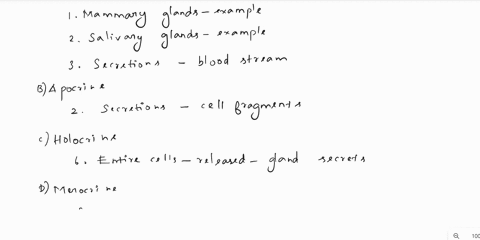 1. Mammary glands - example
2. Salivary glands - example
3. Secretions - blood stream
B) Apocrine
2. Secretions - cell fragments
C) Holocrine
6. Entire cells - released - gland secrets
D) Merocrine
100